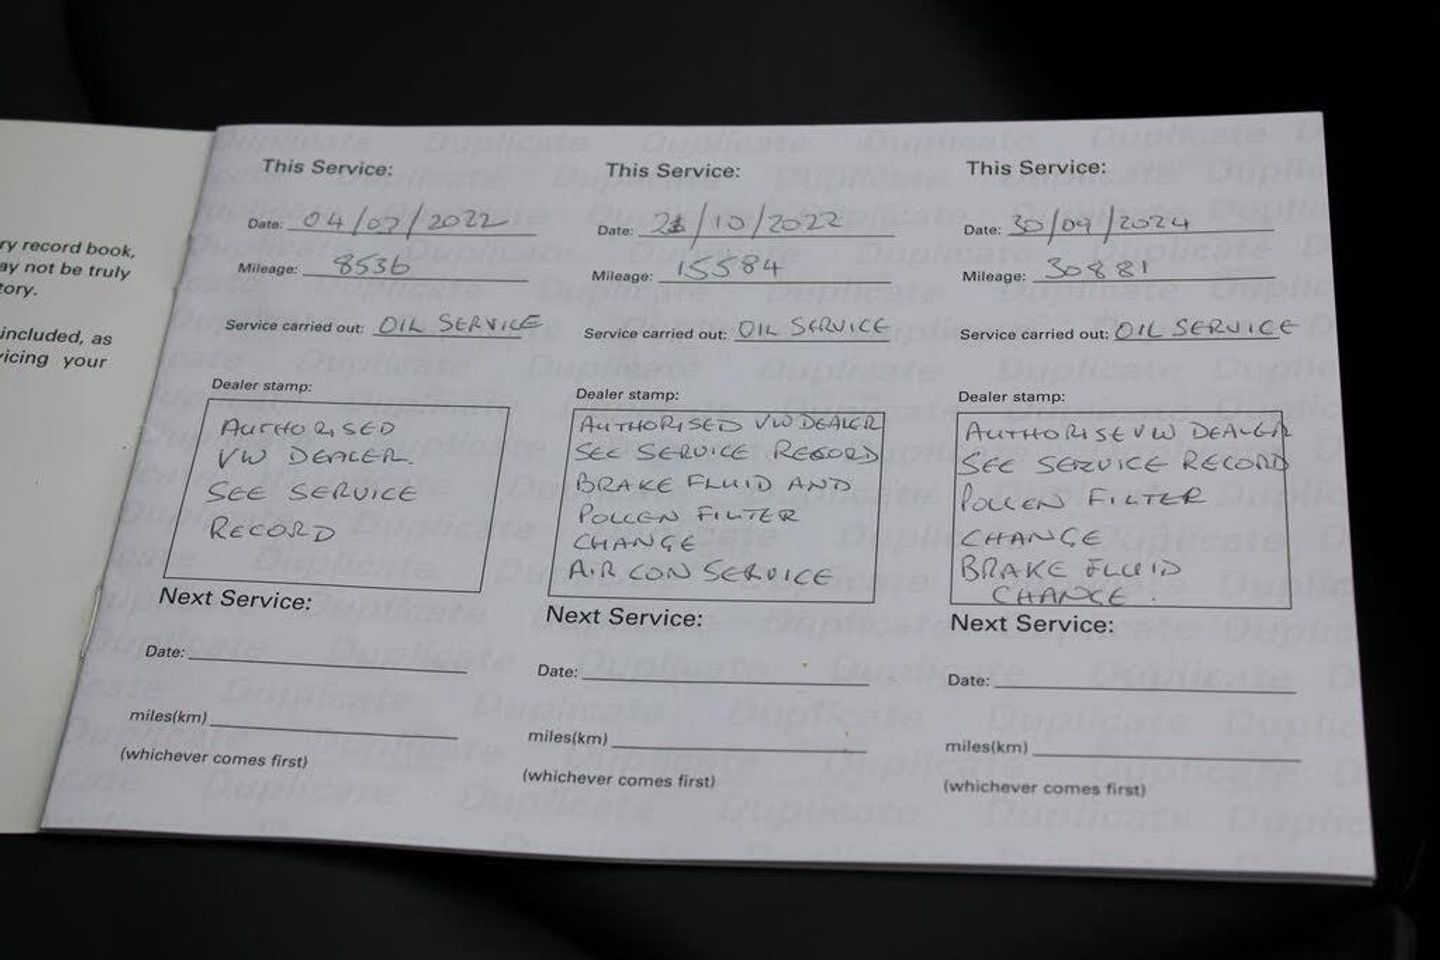 ry record book,
ay not be truly
tory.
included, as
vicing your
This Service:
Date: 04/07/2022
Mileage: 8536
Service carried out: OIL SERVICE
Dealer stamp:
AUTHORISED
VW DEALER.
SEE SERVICE
RECORD
Next Service:
Date:
miles(km)
(whichever comes first)
This Service:
Date: 21/10/2022
Mileage: 15584
Service carried out: OIL SERVICE
Dealer stamp:
AUTHORISED VW DEALER
SEE SERVICE RECORD
BRAKE FLUID AND
POLLEN FILTER
CHANGE
AIR CON SERVICE
Next Service:
Date:
miles(km)
(whichever comes first)
This Service:
Date: 30/09/2024
Mileage: 30881
Service carried out: OIL SERVICE
Dealer stamp:
AUTHORISE VW DEALER
SEE SERVICE RECORD
POLLEN FILTER
CHANGE
BRAKE FLUID
CHANGE.
Next Service:
Date:
miles(km)
(whichever comes first)